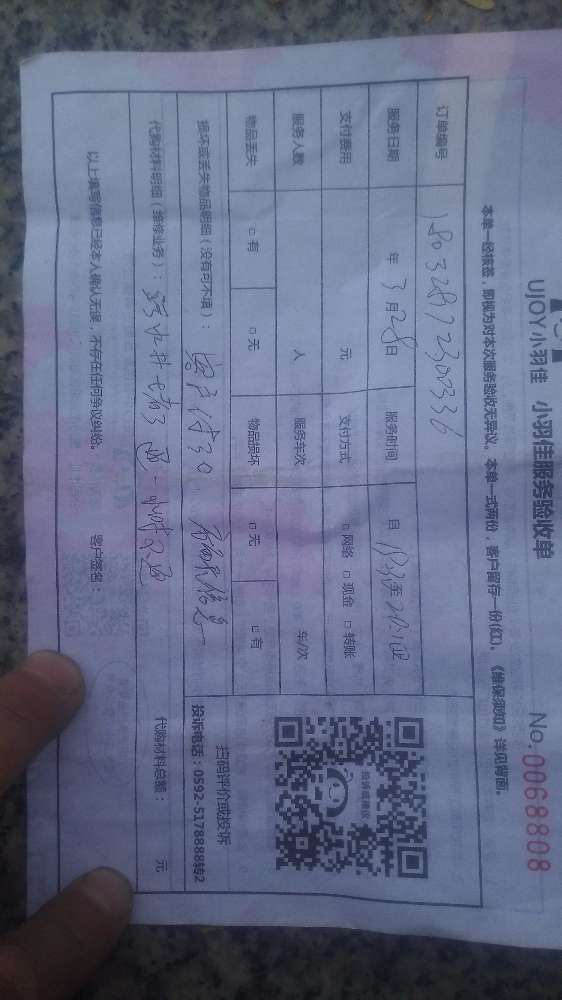 UJOY小羽佳 小羽佳服务验收单
No.0068808
本单一经接签，即视为对本次服务验收无异议。本单一式两份，客户留存一份(红)。《维保须知》详见背面。
订单编号 180328172300336
服务日期 年 3 月 28 日 服务时间 自
支付费用 元 支付方式 □ 网络 □ 现金 □ 转账
服务人数 人 服务车次 车/次
物品丢失 □ 有 □ 无 物品损坏 □ 无 □ 有
投诉或建议
扫码评价或投诉
投诉电话：0592-5178888转2
损坏或丢失物品明细（没有可不填）： 客户付30
代购材料明细（维修业务）： 通一小时不通
代购材料总额： 元
以上填写信息已经本人确认无误，不存在任何争议纠纷。 客户签名：